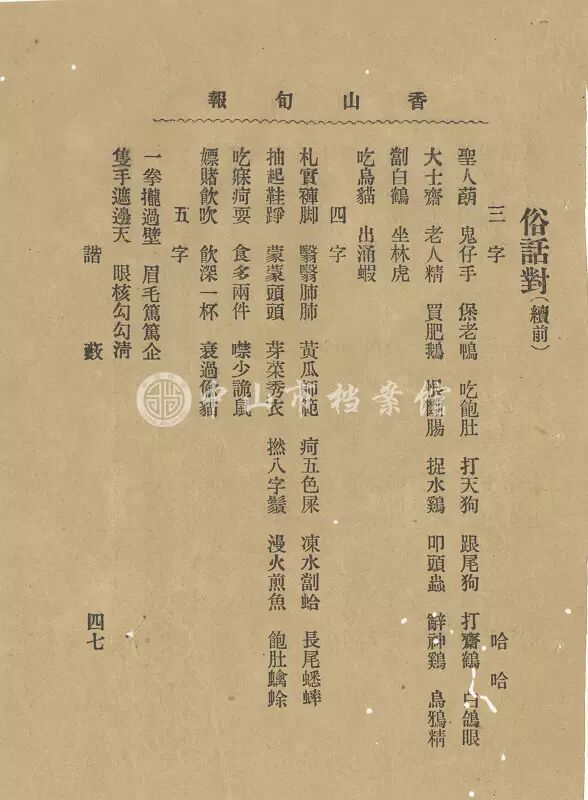 香山旬報
俗話對(續前)
哈哈
三字
聖人蓢 鬼仔手 煲老鴨 吃飽肚 打天狗 跟尾狗 打齋鶴 白鴿眼
大士齋 老人精 買肥鵝 斷腸 捉水鷄 叩頭蟲 辭神鷄 烏鴉精
劏白鶴 坐林虎
吃烏貓 出涌蝦
四字
札實褲脚 翳翳肺肺 黃瓜師範 疴五色屎 凍水劏蛤 長尾蟋蟀
抽起鞋踭 蒙蒙頭頭 芽菜秀衣 撚八字鬚 漫火煎魚 飽肚蠄蜍
吃寐疴耍 食多兩件 噤少詭鼠
嫖賭飲吹 飲深一杯 衰過偷貓
五字
一拳攏過壁 眉毛篤篤企
隻手遮邊天 眼核勾勾淸
諧藪
四七
中山市档案馆